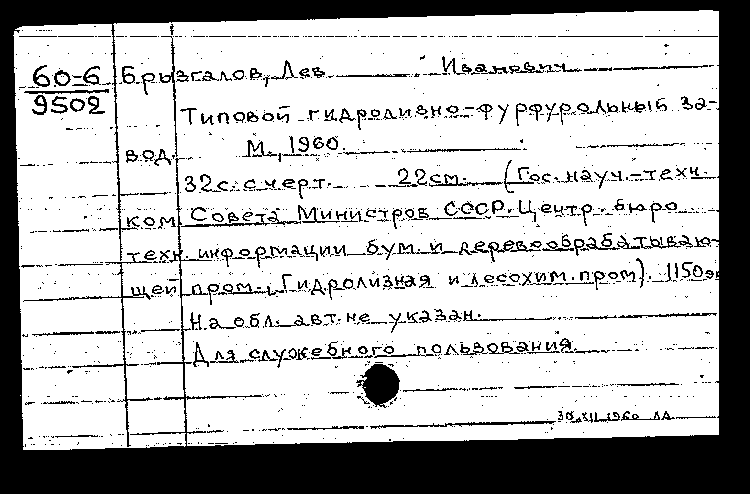 60-6 Брызгалов, Лев Иванович
9502
Типовой гидролизно-фурфурольный за-
вод. М., 1960.
32 с. с черт. 22 см. (Гос. науч.-техн.
ком. Совета Министров СССР. Центр. бюро
техн. информации бум. и деревообрабатываю-
щей пром., Гидролизная и лесохим. пром). 1150 эк
На обл. авт. не указан.
Для служебного пользования.
30 XII 1960 ЛА